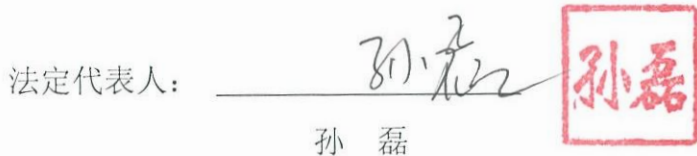 法定代表人： 孙磊 孙磊
孙 磊